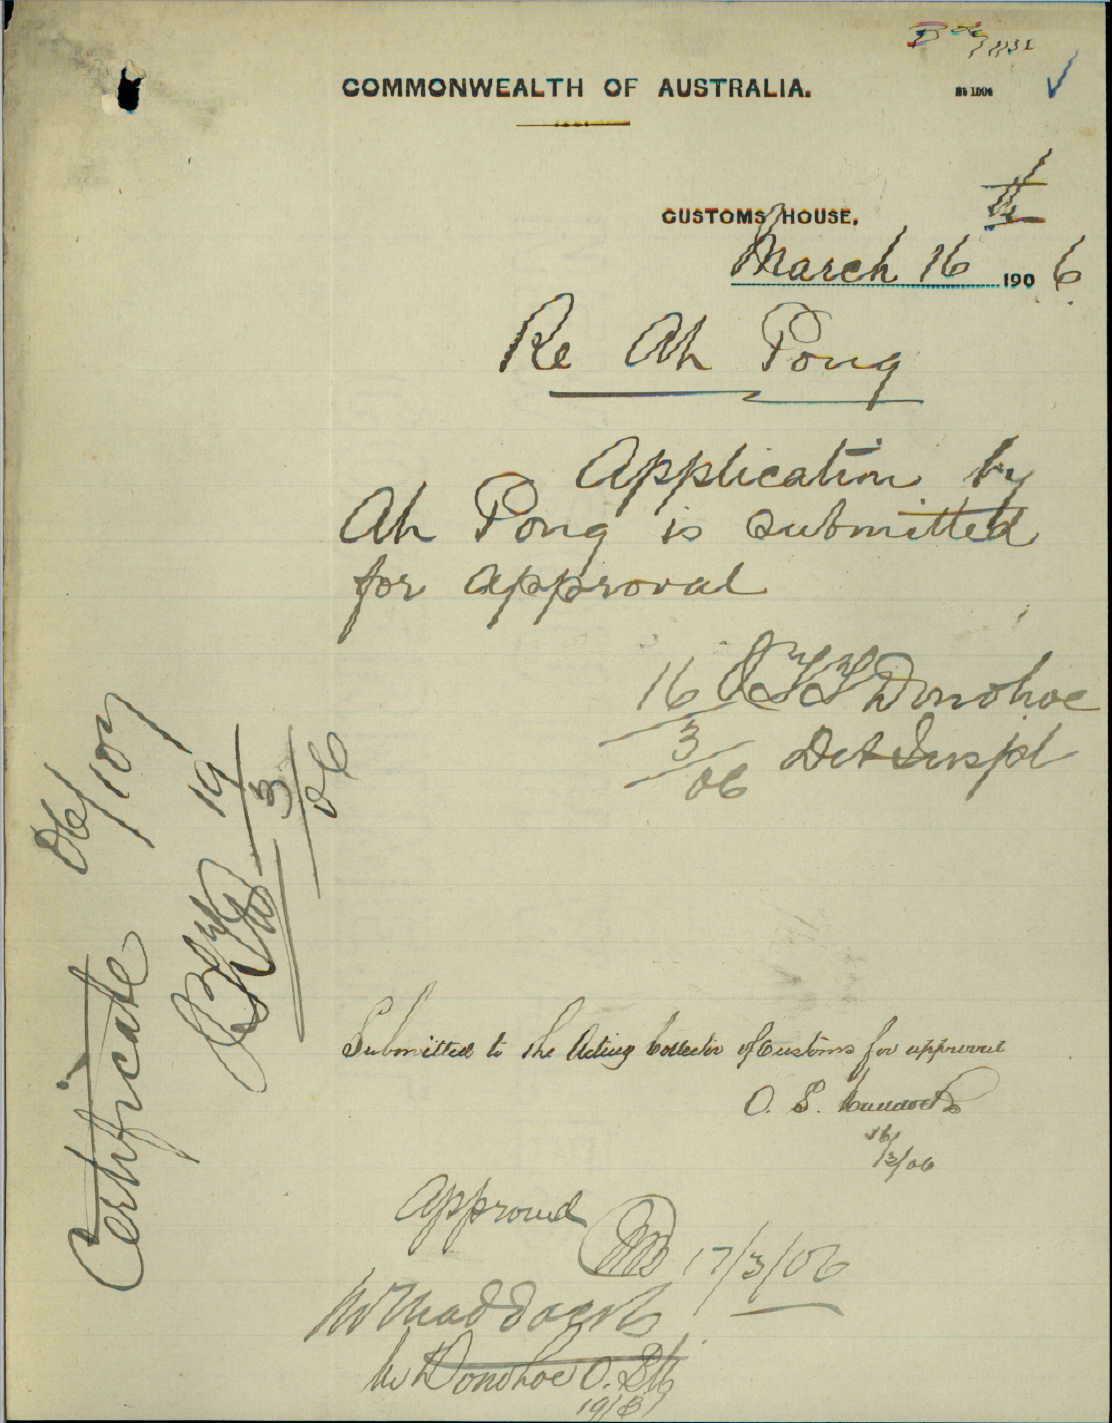 COMMONWEALTH OF AUSTRALIA.
CUSTOMS HOUSE,
March 16th 1906
Re Ah Pong
Application by
Ah Pong is submitted
for approval
16 Donohoe
3 Det Inspr
06
Certificate 06/107
19
3
06
Submitted to the Acting Collector of Customs for approval
O. S. Maddocks
16/3/06
Approved
17/3/06
Mr Maddocks
Mr Donohoe O.S.M
19/3/